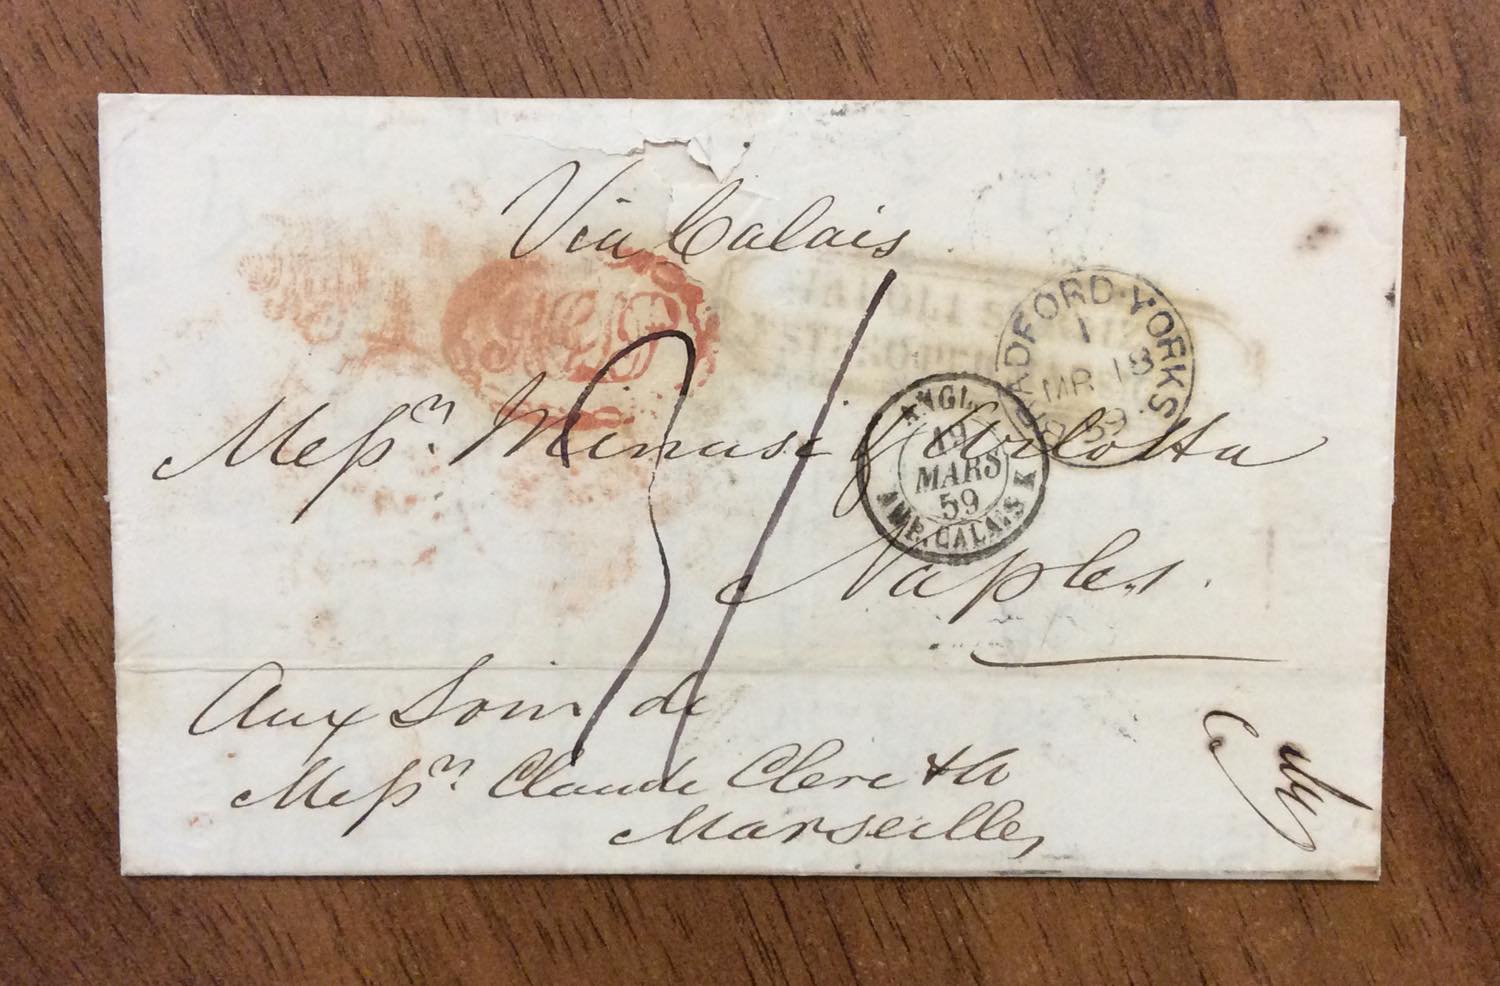 Via Calais
BRADFORD·YORKS
1
MR 18
59
ANGL.
19
MARS
59
AMB. CALAIS
Messrs. Minasi & Arlotta
Naples.
Aux Soin de
Messrs. Claude Clerc & Co
Marseille,